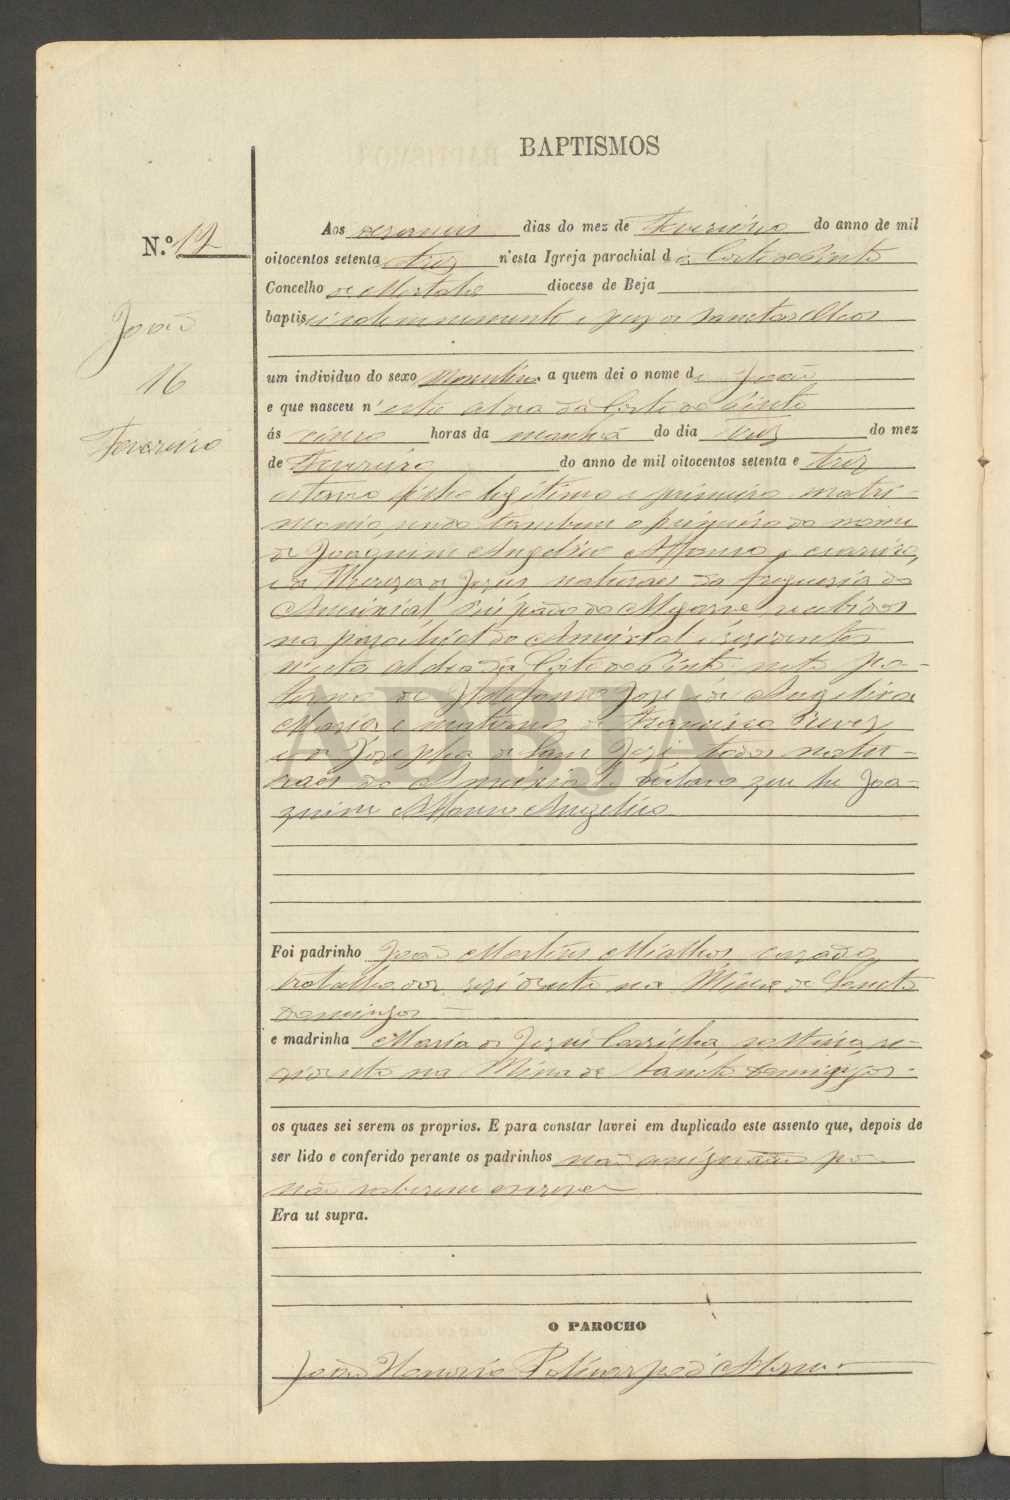 BAPTISMOS
N.º 12
João
16
Fevereiro
Aos dezaseis dias do mez de Fevereiro do anno de mil
oitocentos setenta e trez n'esta Igreja parochial da Corte do Pinto
Concelho de Mertola diocese de Beja
baptisei solemnemente e puz os Sanctos Oleos
um individuo do sexo masculino a quem dei o nome de João
e que nasceu n'esta aldea da Corte do Pinto
ás cinco horas da manhã do dia trez do mez
de Fevereiro do anno de mil oitocentos setenta e trez
filho legitimo e primeiro matri-
monio, sendo tambem o primeiro do nome
de Joaquim Angelino Affonso,
e de Thereza de Jesus naturaes da freguezia do
Ameixial Bispado do Algarve, recebidos
na parochial do Ameixial e residentes
n'esta aldea da Corte do Pinto: neto pa-
terno de José e de Angelina
Maria e materno de Francisco
e de Josepha de José todos natu-
raes do Ameixial, declaro que he Joa-
quim Affonso Angelino
Foi padrinho João Martins cazado,
trabalhador rezidente na Mina de Sancto
Domingos
e madrinha Maria de Jesus solteira re-
zidente na Mina de Sancto Domingos
os quaes sei serem os proprios. E para constar lavrei em duplicado este assento que, depois de
ser lido e conferido perante os padrinhos não assignarão por
não saberem escrever
Era ut supra.
O PAROCHO
João
ADBJA